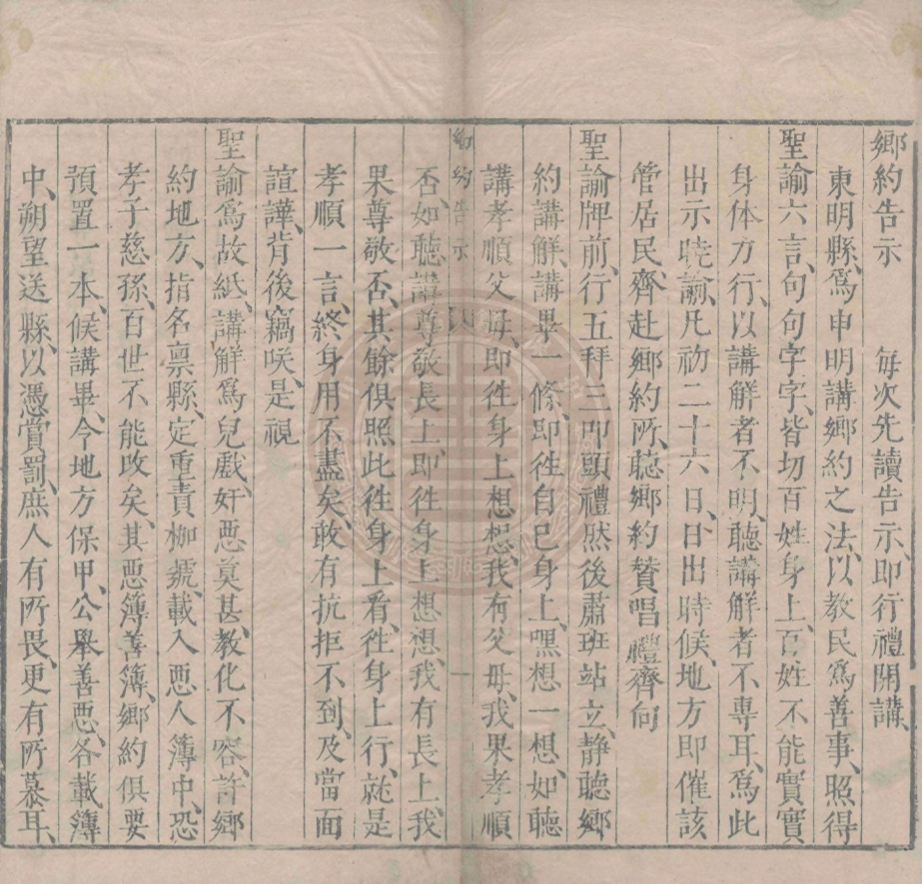 鄉約告示　　每次先讀告示、即行禮開講、
東明縣、爲申明講鄉約之法、以教民爲善事、照得
聖諭六言、句句字字、皆切百姓身上、百姓不能實實
身体力行、以講解者不明、聽講解者不專耳、爲此
出示曉諭、凡初二十六日、日出時候、地方即催該
管居民、齊赴鄉約所、聽鄉約贊唱禮、齊向
聖諭牌前、行五拜三叩頭禮、然後肅班站立、静聽鄉
約講解、講畢一條、即徃自己身上、嘿想一想、如聽
講孝順父母、即徃身上想想、我有父母、我果孝順
鄉約告示　八　一
否、如聽講尊敬長上、即徃身上想想、我有長上、我
果尊敬否、其餘俱照此徃身上看、徃身上行、就是
孝順一言、終身用不盡矣、敢有抗拒不到、及當面
諠譁、背後竊咲、是視
聖諭爲故紙、講解爲兒戲、奸惡莫甚、教化不容、許鄉
約地方、指名禀縣、定重責枷號、載入惡人簿中、恐
孝子慈孫、百世不能改矣、其惡簿善簿、鄉約俱要
預置一本、候講畢、令地方保甲、公舉善惡、各載簿
中、朔望送縣、以憑賞罰、庶人有所畏、更有所慕耳、